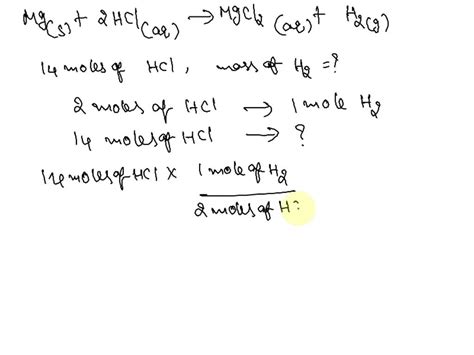 Mg(s) + 2HCl(aq) → MgCl2 (aq) + H2(g)
14 moles of HCl, mass of H2 = ?
2 moles of HCl → 1 mole H2
14 moles of HCl → ?
14 moles of HCl × 1 mole of H2
2 moles of H